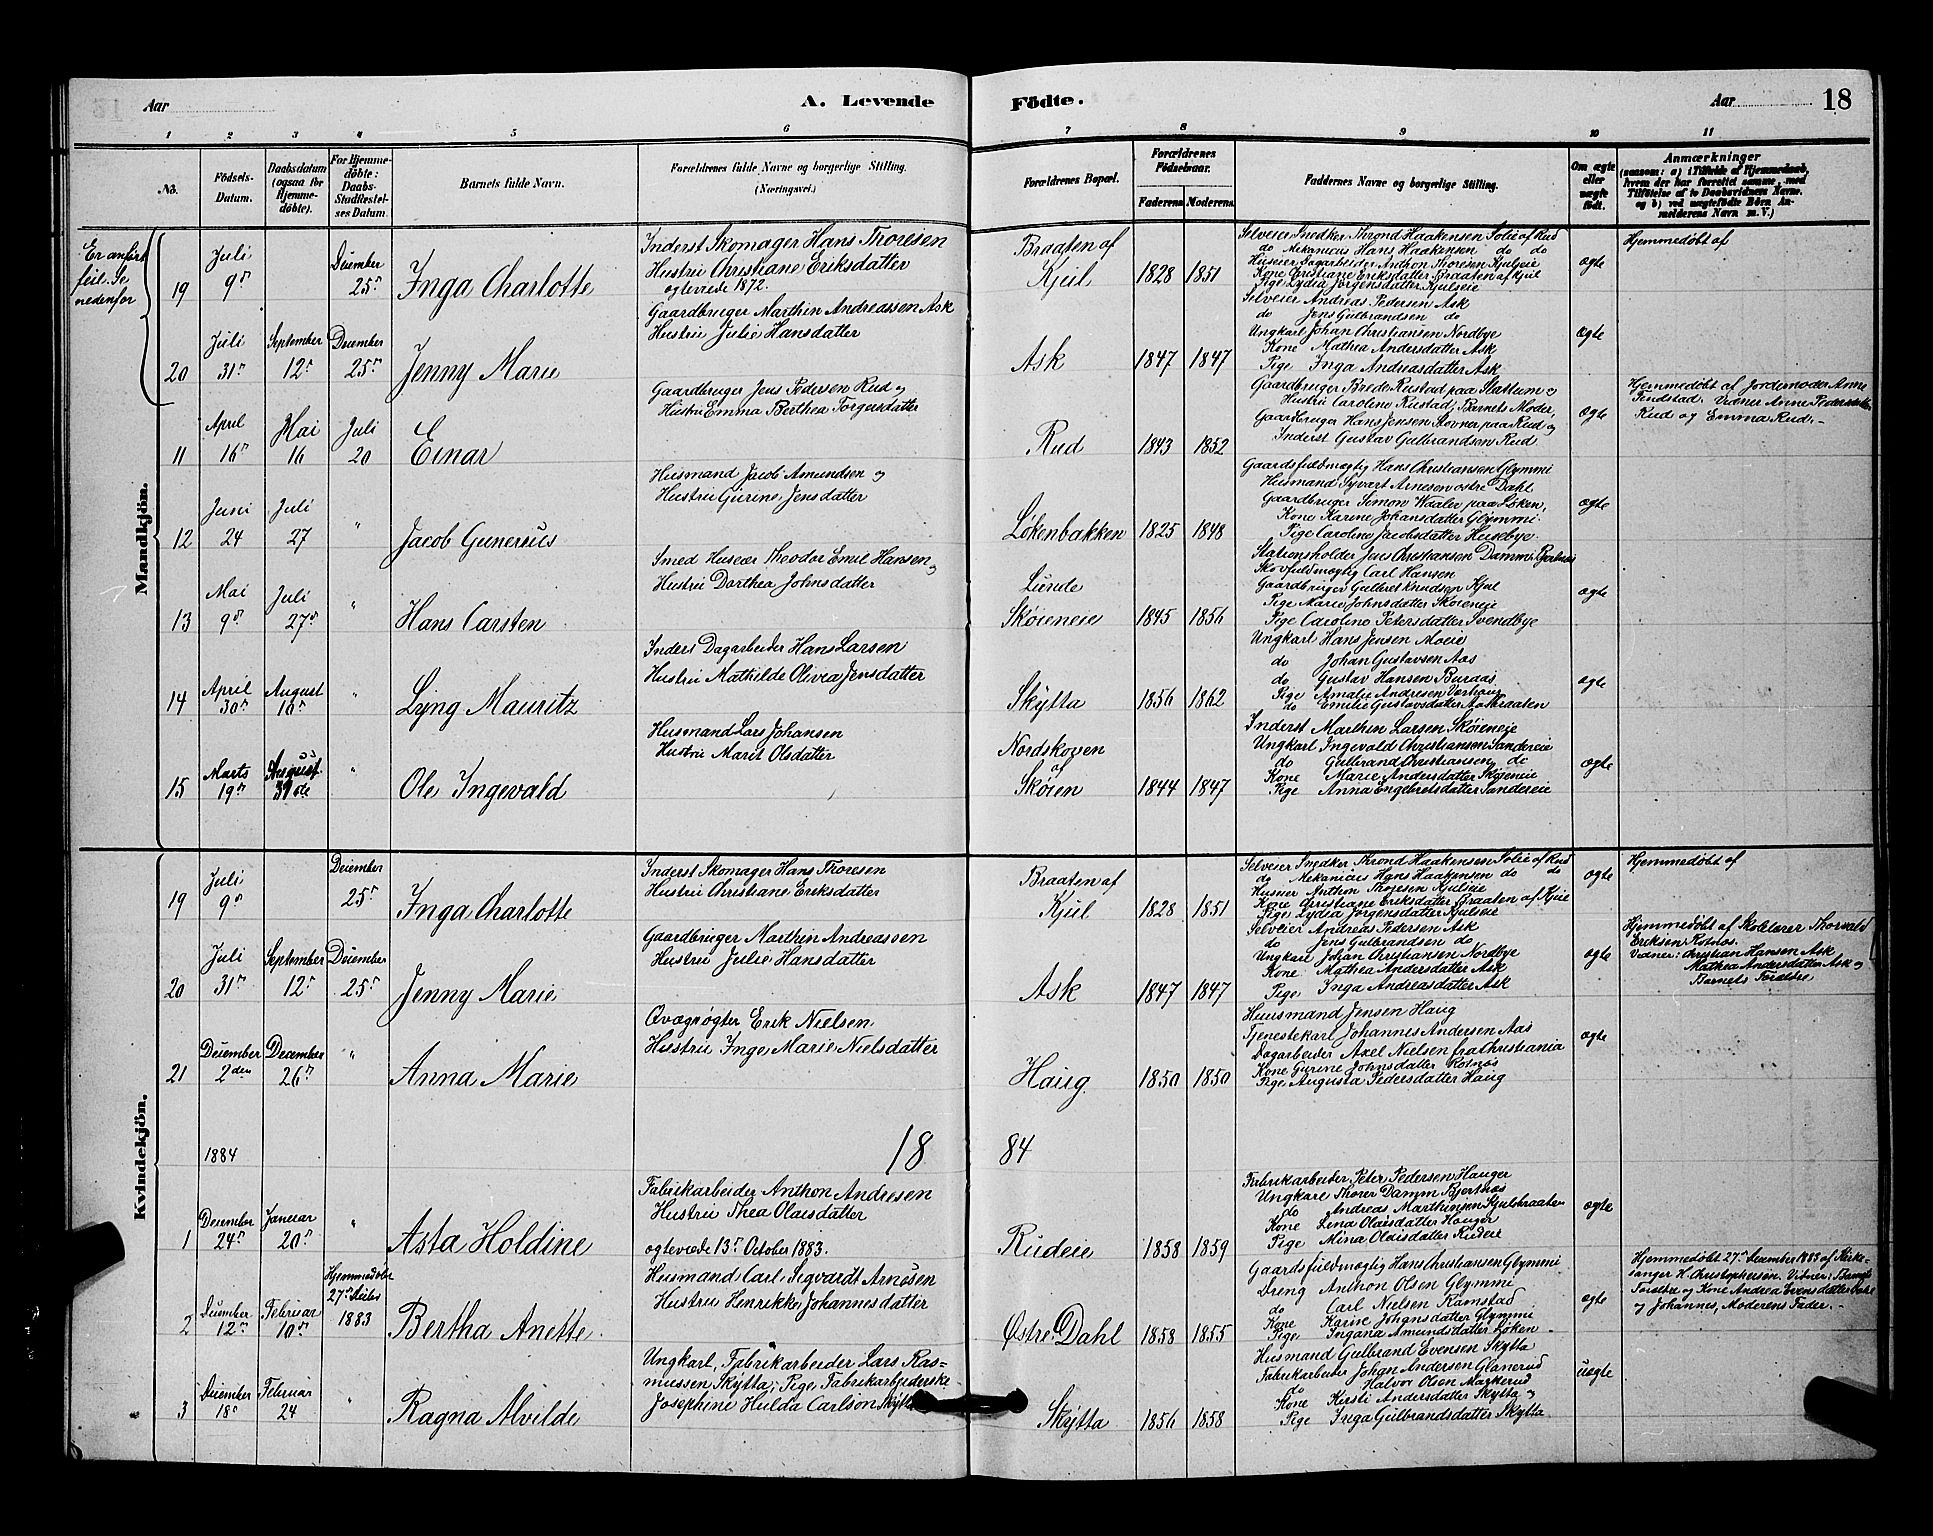 Aar
A. Levende
Födte.
Aar
18
1 2 3 4 5 6 7 8 9 10 11
No.
Födsels-Datum.
Daabsdatum (ogsaa for Hjemme-døbte).
For Hjemme-døbte: Daabs-Stadfæstel-ses Datum.
Barnets fulde Navn.
Forældrenes fulde Navne og borgerlige Stilling.
(Næringsvei.)
Forældrenes Bopæl.
Forældrenes Fødselsaar.
Faderens Moderens
Faddernes Navne og borgerlige Stilling.
Om ægte eller uægte født.
Anmærkninger
(saasom: a) i Tilfælde af Hjemmedaab,
hvem der har forrettet samme, med
Tilföielse af to Daabsvidners Navne.
og b) ved uægtefödte Börn An-
melderens Navn m. V.)
Er anført
feil. Se
nedenfor
Mandkjön.
19
Juli
9de
December
25de
Inga Charlotte
Inderst Skomager Hans Thoresen
Hustru Christiane Eriksdatter
ægteviede 1872.
Braaten af
Kjul
1828
1851
Selveier Snedker Thrond Haakensen Solie af Rud
do Mekanicus Hans Haakensen do do
Huseier Dagarbeider Anthon Thoresen Kjulseie
Kone Cristiane Eriksdatter Braaten af Kjul
Pige Lydia Jörgensdatter Kjulseie
ægte
Hjemmedøbt af
20
Juli
31te
September
12te
December
25de
Jenny Marie
Gaardbruger Marthin Andreassen Ask
Hustru Julie Hansdatter
Ask
1847
1847
Selveier Andreas Pedersen Ask
do Jens Gulbrandsen do
Ungkarl Johan Christiansen Nordbye
Kone Mathea Andersdatter Ask
Pige Inga Andreasdatter Ask
ægte
11
April
16de
Mai
16
Juli
20
Einar
Gaardbruger Jens Pedersen Rud og
Hustru Emma Berthea Torgersdatter
Rud
1843
1852
Gaardbruger Brede Rustad paa Slattum og
Hustru Caroline Rustad, Barnets Moder,
Gaardbruger Hans Jensen Skovner paa Rud og
Inderst Gustav Gulbrandsen Rud.
ægte
Hjemmedøbt af Jordemoder Anne
Tindstad. Vidner Anne Pedersdatter
Rud og Emma Rud.-
12
Juni
24
Juli
27
"
Jacob Gunerius
Husmand Jacob Amundsen og
Hustru Gurine Jensdatter
Løkenbakken
1825
1848
Gaardsfuldmægtig Hans Christiansen Glymmi
Husmand Syvart Arnesen østre Dahl
Gaardbruger Simon Waaler paa Løken,
Kone Karine Johansdatter Glymmi.
Pige Caroline Jacobsdatter Husebye.
ægte
13
Mai
9de
Juli
27de
"
Hans Carsten
Smed Huseier Theodor Emil Hansen og
Hustru Dorthea Johnsdatter
Lunde
Skøieneie
1845
1856
Stationsholder Jens Christiansen Damm, Bjertnæs
Skovfuldmægtig Carl Hansen
Gaardbruger Gulbret Knudsen Kjul
Pige Marie Johnsdatter Skøieneie
Pige Caroline Petersdatter Svendbye
ægte
14
April
30te
August
16de
"
Lyng Mauritz
Inderst Dagarbeider Hans Larsen
Hustru Mathilde Olivea Jensdatter
Skytta
1856
1862
Ungkarl Hans Jensen Moeie
do Johan Gustavsen Aas
do Gustav Hansen Buraas
Pige Amalie Andresen Værhaug
do Emilie Gustavsdatter Aasbraaten
ægte
15
Marts
19de
August
31de
"
Ole Ingevald
Husmand Lars Johansen
Hustru Marit Olsdatter
Nordskoven
af
Skøien
1844
1847
Inderst Marthin Larsen Skøieneie
Ungkarl Ingevald Christiansen Sandereie
do Gulbrand Christiansen do
Kone Marie Andersdatter Skøieneie
Pige Anna Engebretsdatter Sandereie
ægte
Kvindekjön.
19
Juli
9de
December
25de
Inga Charlotte
Inderst Skomager Hans Thoresen
Hustru Christiane Eriksdatter
Braaten af
Kjul
1828
1851
Selveier Snedker Thrond Haakensen Solie af Rud
do Mekanicus Hans Haakensen do do
Huseier Anthon Thoresen Kjulseie
Kone Christiane Eriksdatter Braaten af Kjul
Pige Lydia Jörgensdatter Kjulseie
ægte
Hjemmedøbt af
20
Juli
31te
September
12te
December
25de
Jenny Marie
Gaardbruger Marthin Andreassen
Hustru Julie Hansdatter
Ask
1847
1847
Selveier Andreas Pedersen Ask
do Jens Gulbrandsen do
Ungkarl Johan Christiansen Nordbye
Kone Mathea Andersdatter Ask
Pige Inga Andreasdatter Ask
ægte
Hjemmedøbt af Skolelærer Thorvald
Eriksen Rotnæs.
Vidner: Christian Hansen Ask
Mathea Andersdatter Ask og
Barnets Forældre
21
December
2den
December
26de
"
Anna Marie
Qvægrøgter Erik Nielsen.
Hustru Inge Marie Nielsdatter
Haug
1850
1850
Huusmand Jensen Haug
Tjenestekarl Johannes Andersen Aas
Dagarbeider Axel Nielsen fra Christiania
Kone Gurine Johnsdatter Rotnæs
Pige Augusta Pedersdatter Haug
ægte
1884
18 84
1
December
24de
Januar
20de
"
Asta Holdine
Fabrikarbeider Anthon Andresen
Hustru Thea Olaisdatter
ægteviede 13de October 1883.
Rudeie
1858
1859
Fabrikarbeider Peter Pedersen Hauger
Ungkarl Thorer Damm Bjertnæs
do Andreas Marthinsen Kjulsbraaten
Kone Lina Olaisdatter Hauger
Pige Mina Olaisdatter Rudeie
ægte
2
December
12te
Februar
10de
Hjemmedøbt
27de Decbr
1883
Bertha Anette.
Husmand Carl Sigvardt Arnesen
Hustru Henrikke Johannesdatter
Østre Dahl
1858
1855
Gaardsfuldmægtig Hans Christiansen Glymmi
Dreng Anthon Olsen Glymmi
do Carl Nielsen Ramstad
Kone Karine Johansdatter Glymmi
Pige Ingana Amundsdatter Løken
ægte
Hjemmedøbt 27de December 1883 af Kirke-
sanger H. Christophersen. Vidner: Barnets
Forældre og Kone Andrea Evensdatter
og Johannes, Moderens Fader.-
3
December
18de
Februar
24
"
Ragna Alvilde
Ungkarl, Fabrikarbeider Lars Ras-
mussen Skytta; Pige Fabrikarbeiderske
Josephine Hulda Carlson Skytta
Skytta
1856
1858
Husmand Gulbrand Evensen Skytta
Fabrikarbeider Johan Andersen Glanerud
do Halvor Olsen Maskerud
Kone Kirsti Andersdatter Skytta og
Pige Inga Gulbrandsdatter Skytta
uægte